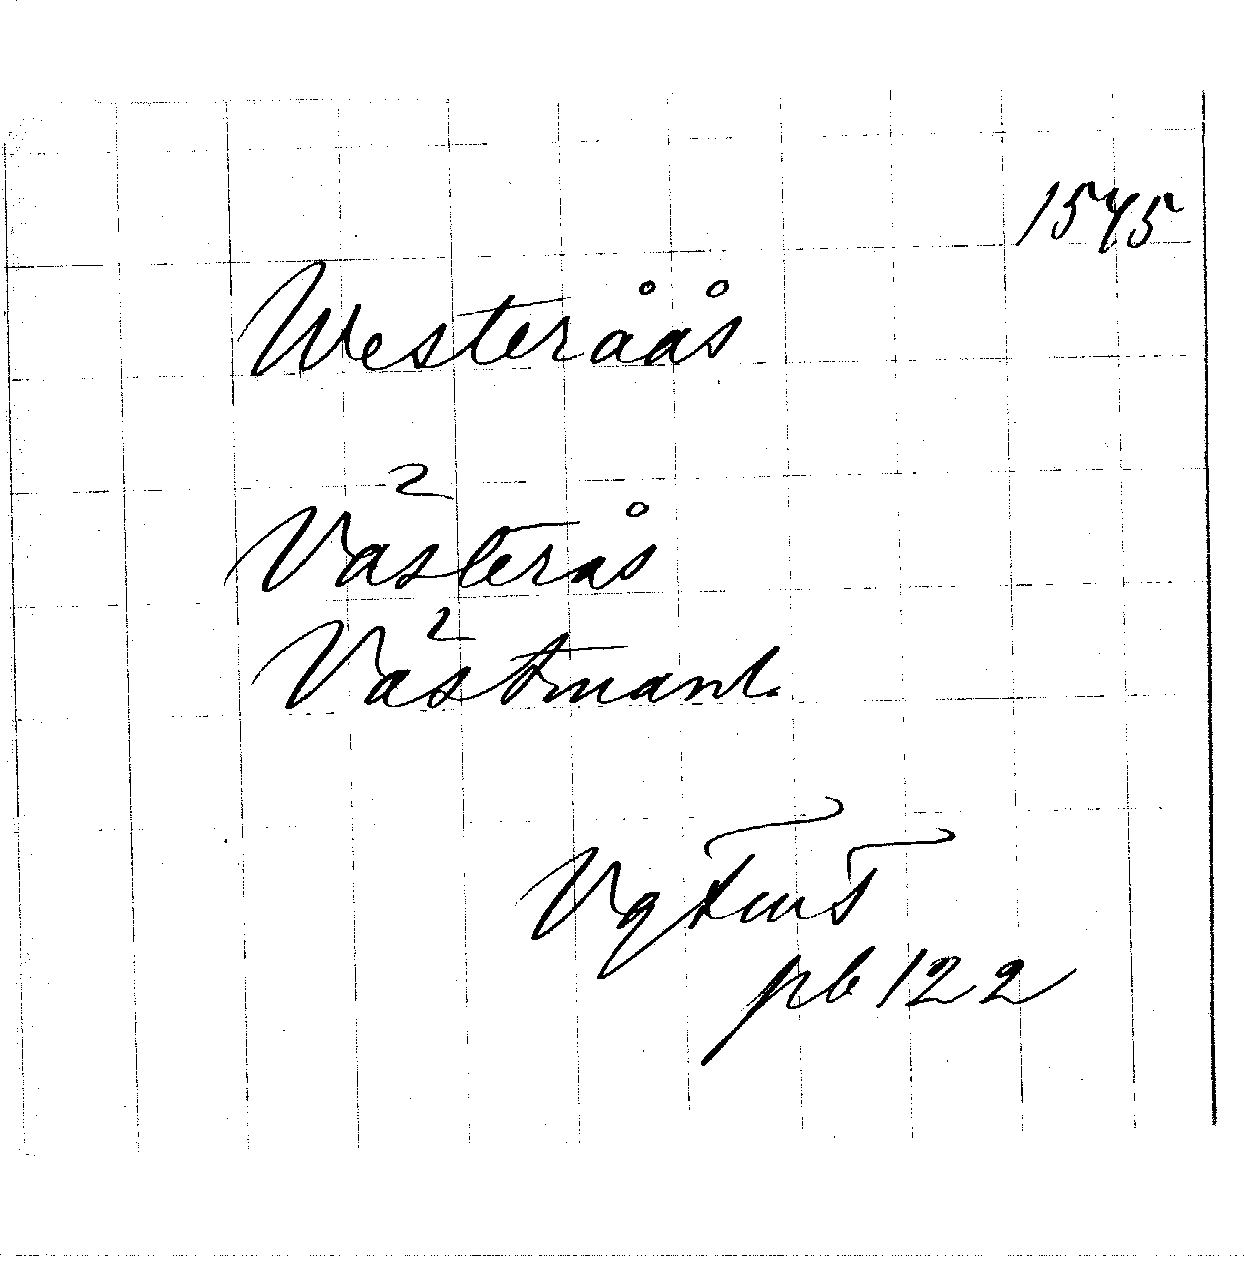 1545
Westeråås
Västerås
Västmanl.
pb 122